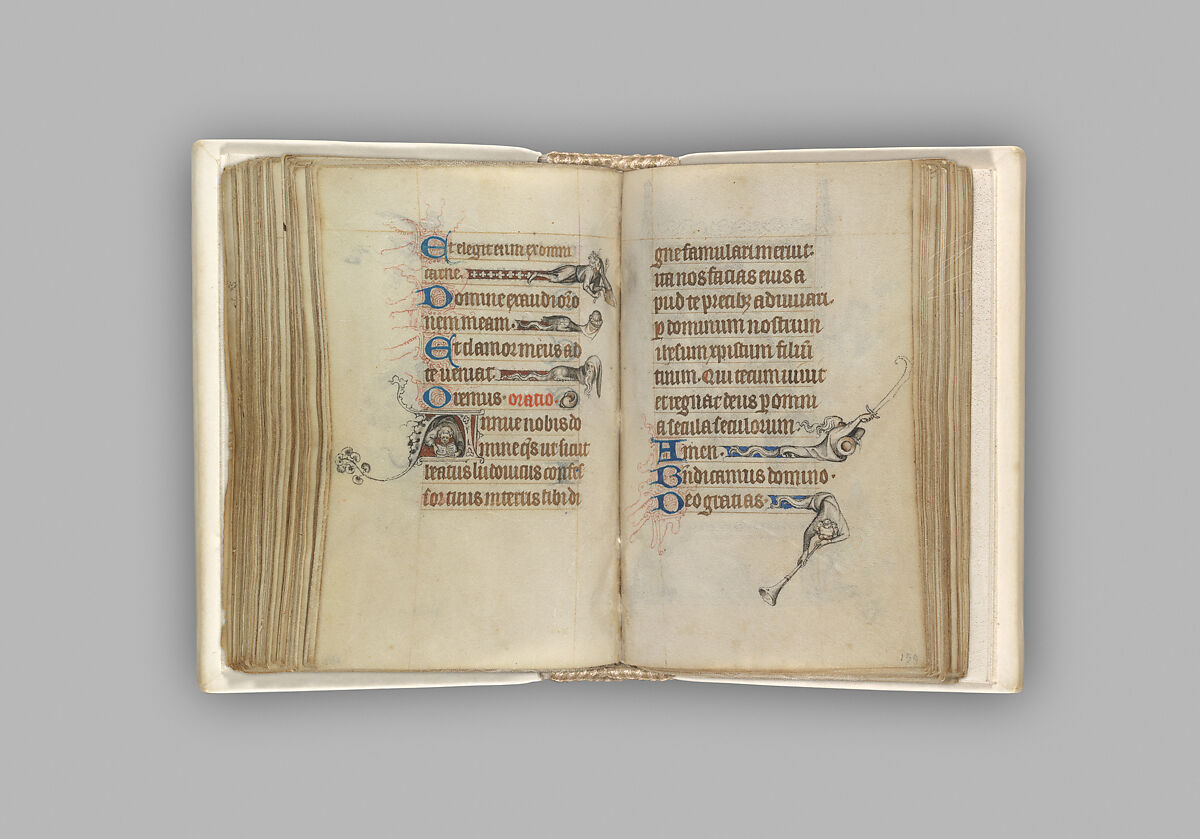 Et elegit eum ex omni
carne.
Domine exaudi oro
nem meam.
Et clamor meus ad
te veniat.
Oremus. oratio.
Annue nobis do
mine qs ut sicut
beatus ludovicus confes
for tuus in terris tibi di
gne famulari meruit:
ita nos facias eius a
pud te precibz adiuvari.
p dominum nostrum
ihesum xpistum filiu
tuum. Qui tecum vivit
et regnat deus p omni
a secula seculorum
Amen.
Bndicamus domino.
Deo gratias.
159